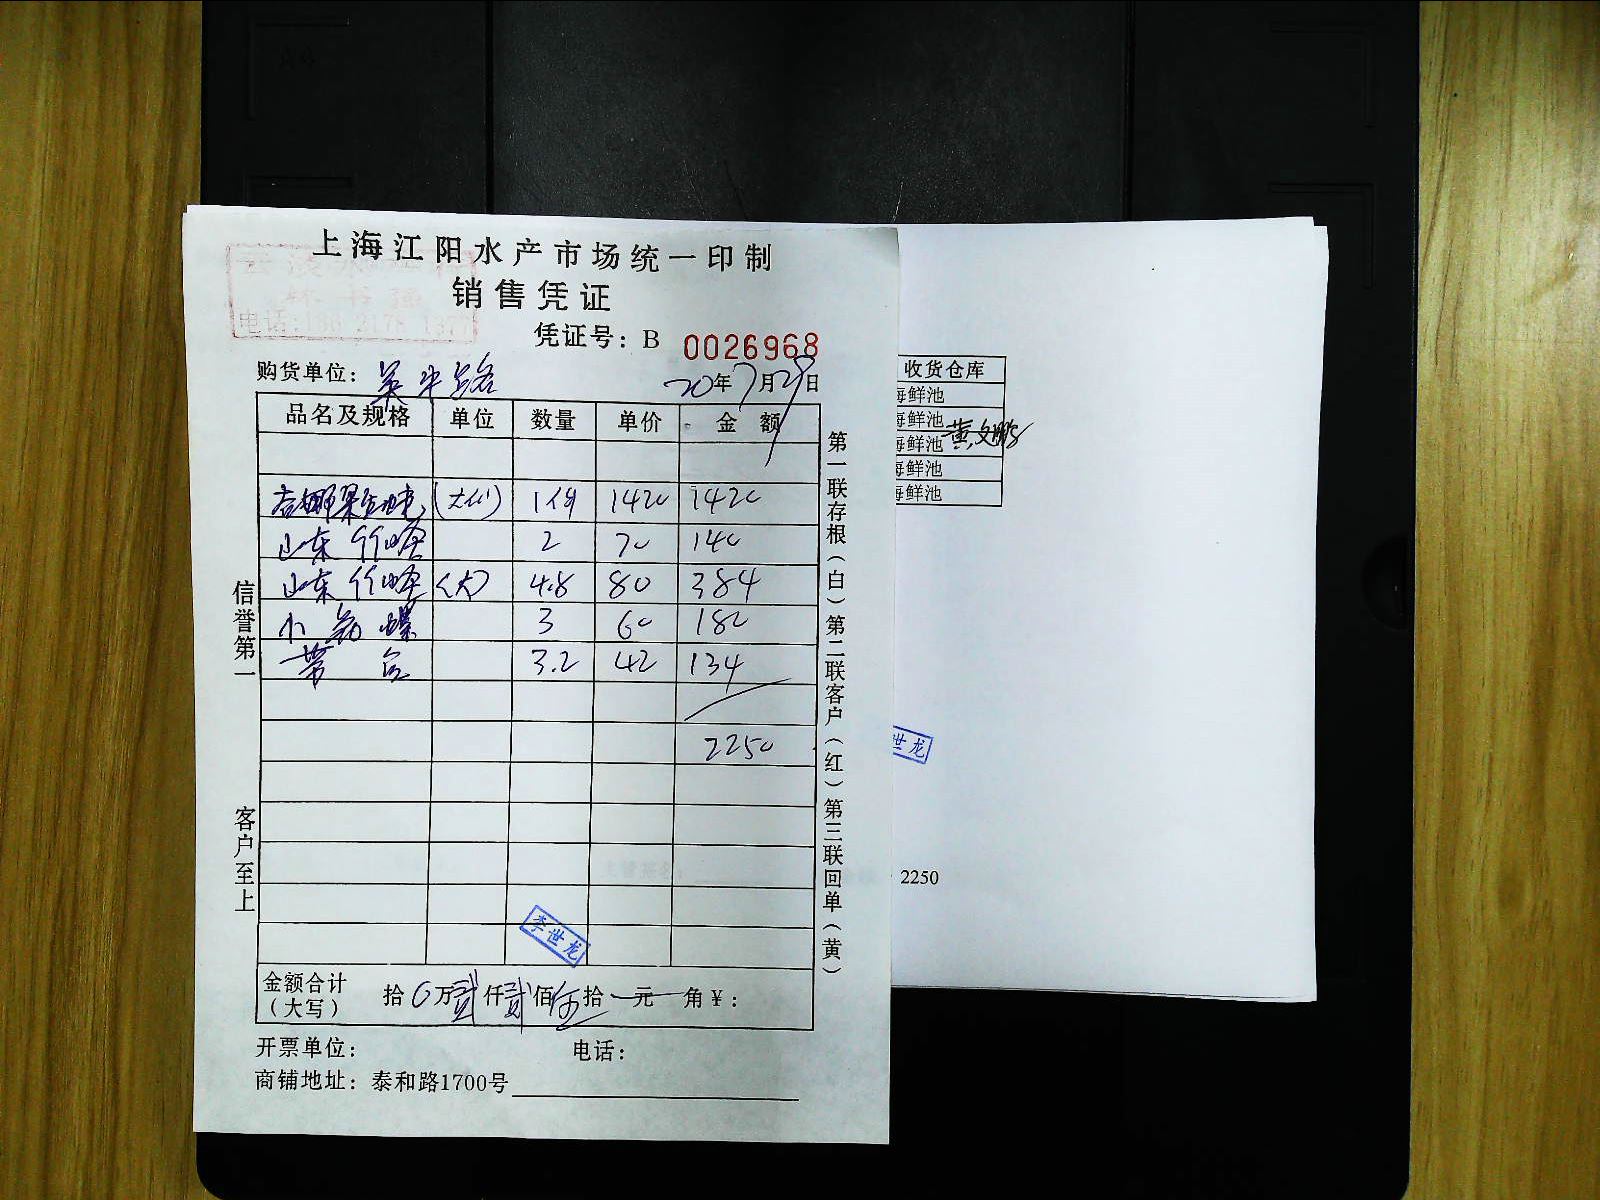 上海江阳水产市场统一印制
销售凭证
电话:
凭证号：B 0026968
购货单位：
20年7月29日
品名及规格 单位 数量 单价 金额
(大) 1 1420 1420
山东 2 70 140
山东 (大) 4.8 80 384
小 螺 3 60 180
3.2 42 134
2250
李世龙
金额合计（大写） 拾0万贰仟贰佰伍拾元角￥：
开票单位： 电话：
商铺地址：泰和路1700号
信誉第一
客户至上
第一联存根（白）第二联客户（红）第三联回单（黄）
收货仓库
海鲜池
海鲜池
海鲜池
海鲜池
海鲜池
世龙
2250